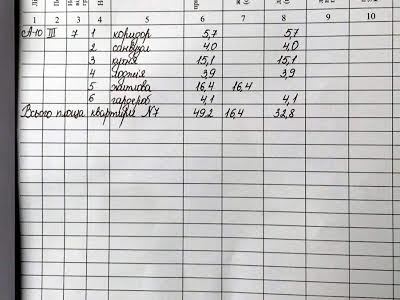 1 2 3 4 5 6 7 8 9 10
А-10 III 7 1 коридор 5,7 5,7
2 санвузол 4,0 4,0
3 кухня 15,1 15,1
4 лоджія 3,9 3,9
5 житлова 16,4 16,4
6 гардероб 4,1 4,1
Всього площа квартири N7 49,2 16,4 32,8